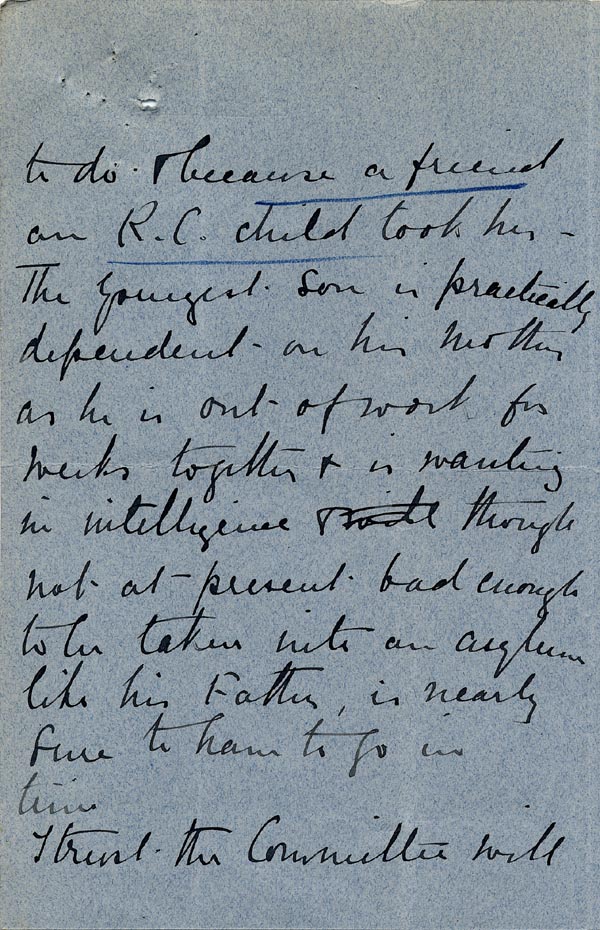 to do. & because a friend
an R.C. child took her -
The youngest son is practically
dependent on his mother
as he is out of work for
weeks together & is wanting
in intelligence & though
not at present bad enough
to be taken into an asylum
like his Father, is nearly
sure to have to go in
time
I trust the Committee will